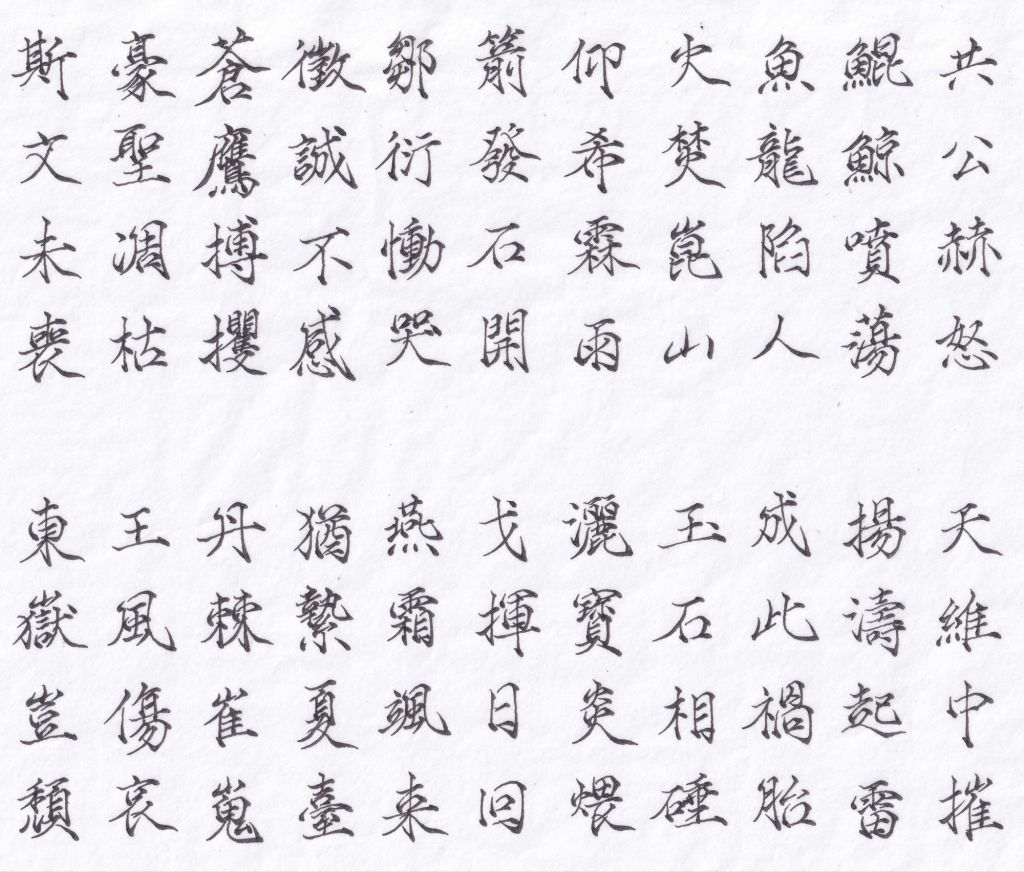 共公赫怒 天維中摧
鯤鯨噴蕩 揚濤起雷
魚龍陷人 成此禍胎
火焚崑山 玉石相硾
仰希霖雨 灑寶炎煨
箭發石開 戈揮日回
鄒衍慟哭 燕霜颯来
微誠不感 猶縶夏臺
蒼鷹搏攫 丹棘崔嵬
豪聖凋枯 王風傷哀
斯文未喪 東嶽豈頹